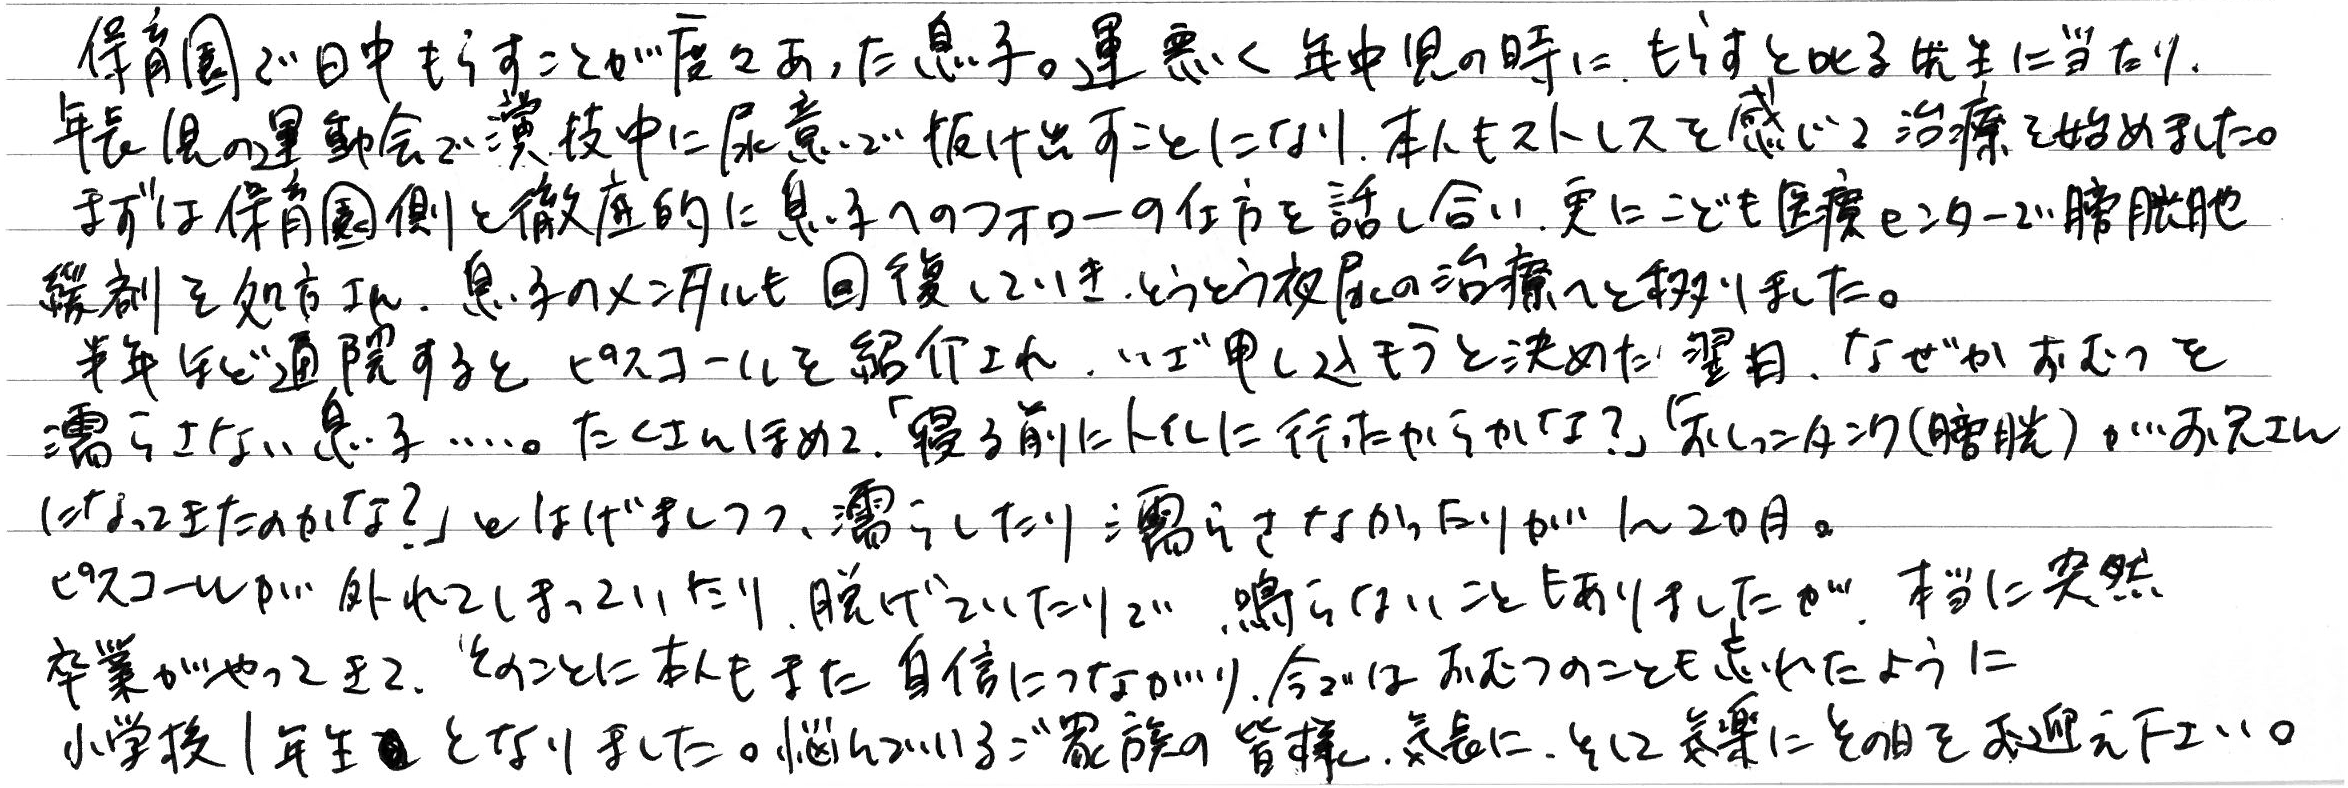 保育園で日中もらすことが度々あった息子。運悪く年中児の時に、もらすと叱る先生に当たり、
年長児の運動会で演技中に尿意で抜け出すことになり、本人もストレスを感じて治療を始めました。
まずは保育園側と徹底的に息子へのフォローの仕方を話し合い、更にこども医療センターで膀胱弛
緩剤を処方され、息子のメンタルも回復していき、とうとう夜尿の治療へと移りました。
半年ほど通院するとピスコールを紹介され、いざ申し込もうと決めた翌日、なぜかおむつを
濡らさない息子・・・・・。たくさんほめて、「寝る前にトイレに行ったからかな?」「おしっこタンク(膀胱)がお兄さん
になってきたのかな?」とはげましつつ、濡らしたり濡らさなかったりが1~2カ月。
ピスコールが外れてしまっていたり、脱げていたりで、鳴らないこともありましたが、本当に突然
卒業がやってきて、そのことに本人もまた自信につながり、今ではおむつのことも忘れたように
小学校1年生となりました。悩んでいるご家族の皆様、気長に、そして気楽にその日をお迎え下さい。